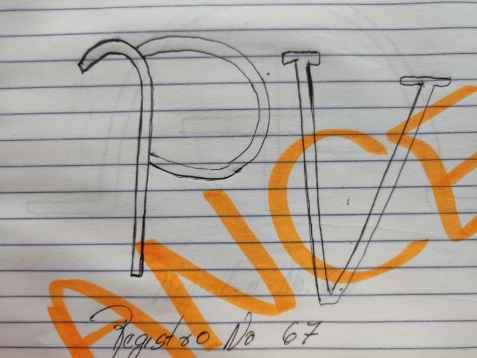 PV
ANCE
Registro No 67